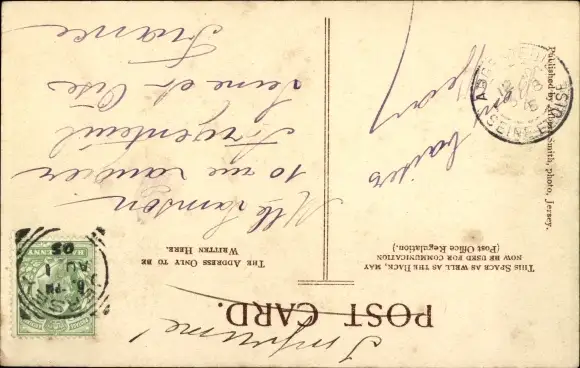 Imprimé
POST CARD.
THIS SPACE AS WELL AS THE BACK, MAY
NOW BE USED FOR COMMUNICATION
(Post Office Regulation.)
THE ADDRESS ONLY TO BE
WRITTEN HERE.
baisers
Mlle Samson
10 rue
Argenteuil
Seine et Oise
France
JERSEY
AU 1
05
HALFPENNY
SEINE-ET-OISE
Smith, photo, Jersey.
Published by